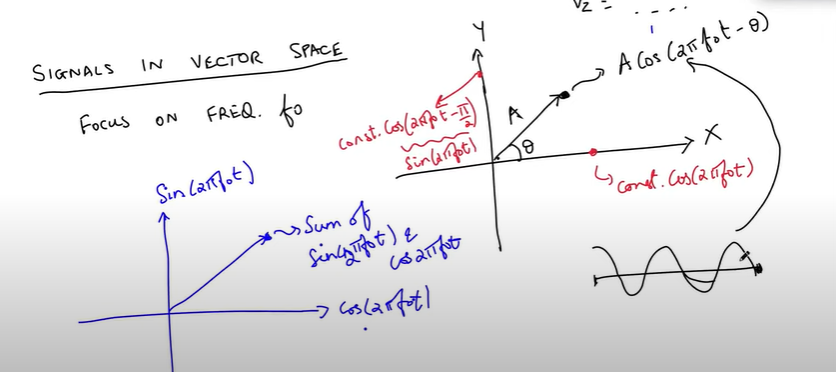 V2 = - - - .
SIGNALS IN VECTOR SPACE
FOCUS ON FREQ. fo
Y
A Cos(2πfot - θ)
A
θ
X
Const. Cos(2πfot - π/2)
Sin(2πfot)
Const. Cos(2πfot)
Sin(2πfot)
Sum of
Sin(2πfot) &
Cos2πfot
Cos(2πfot)